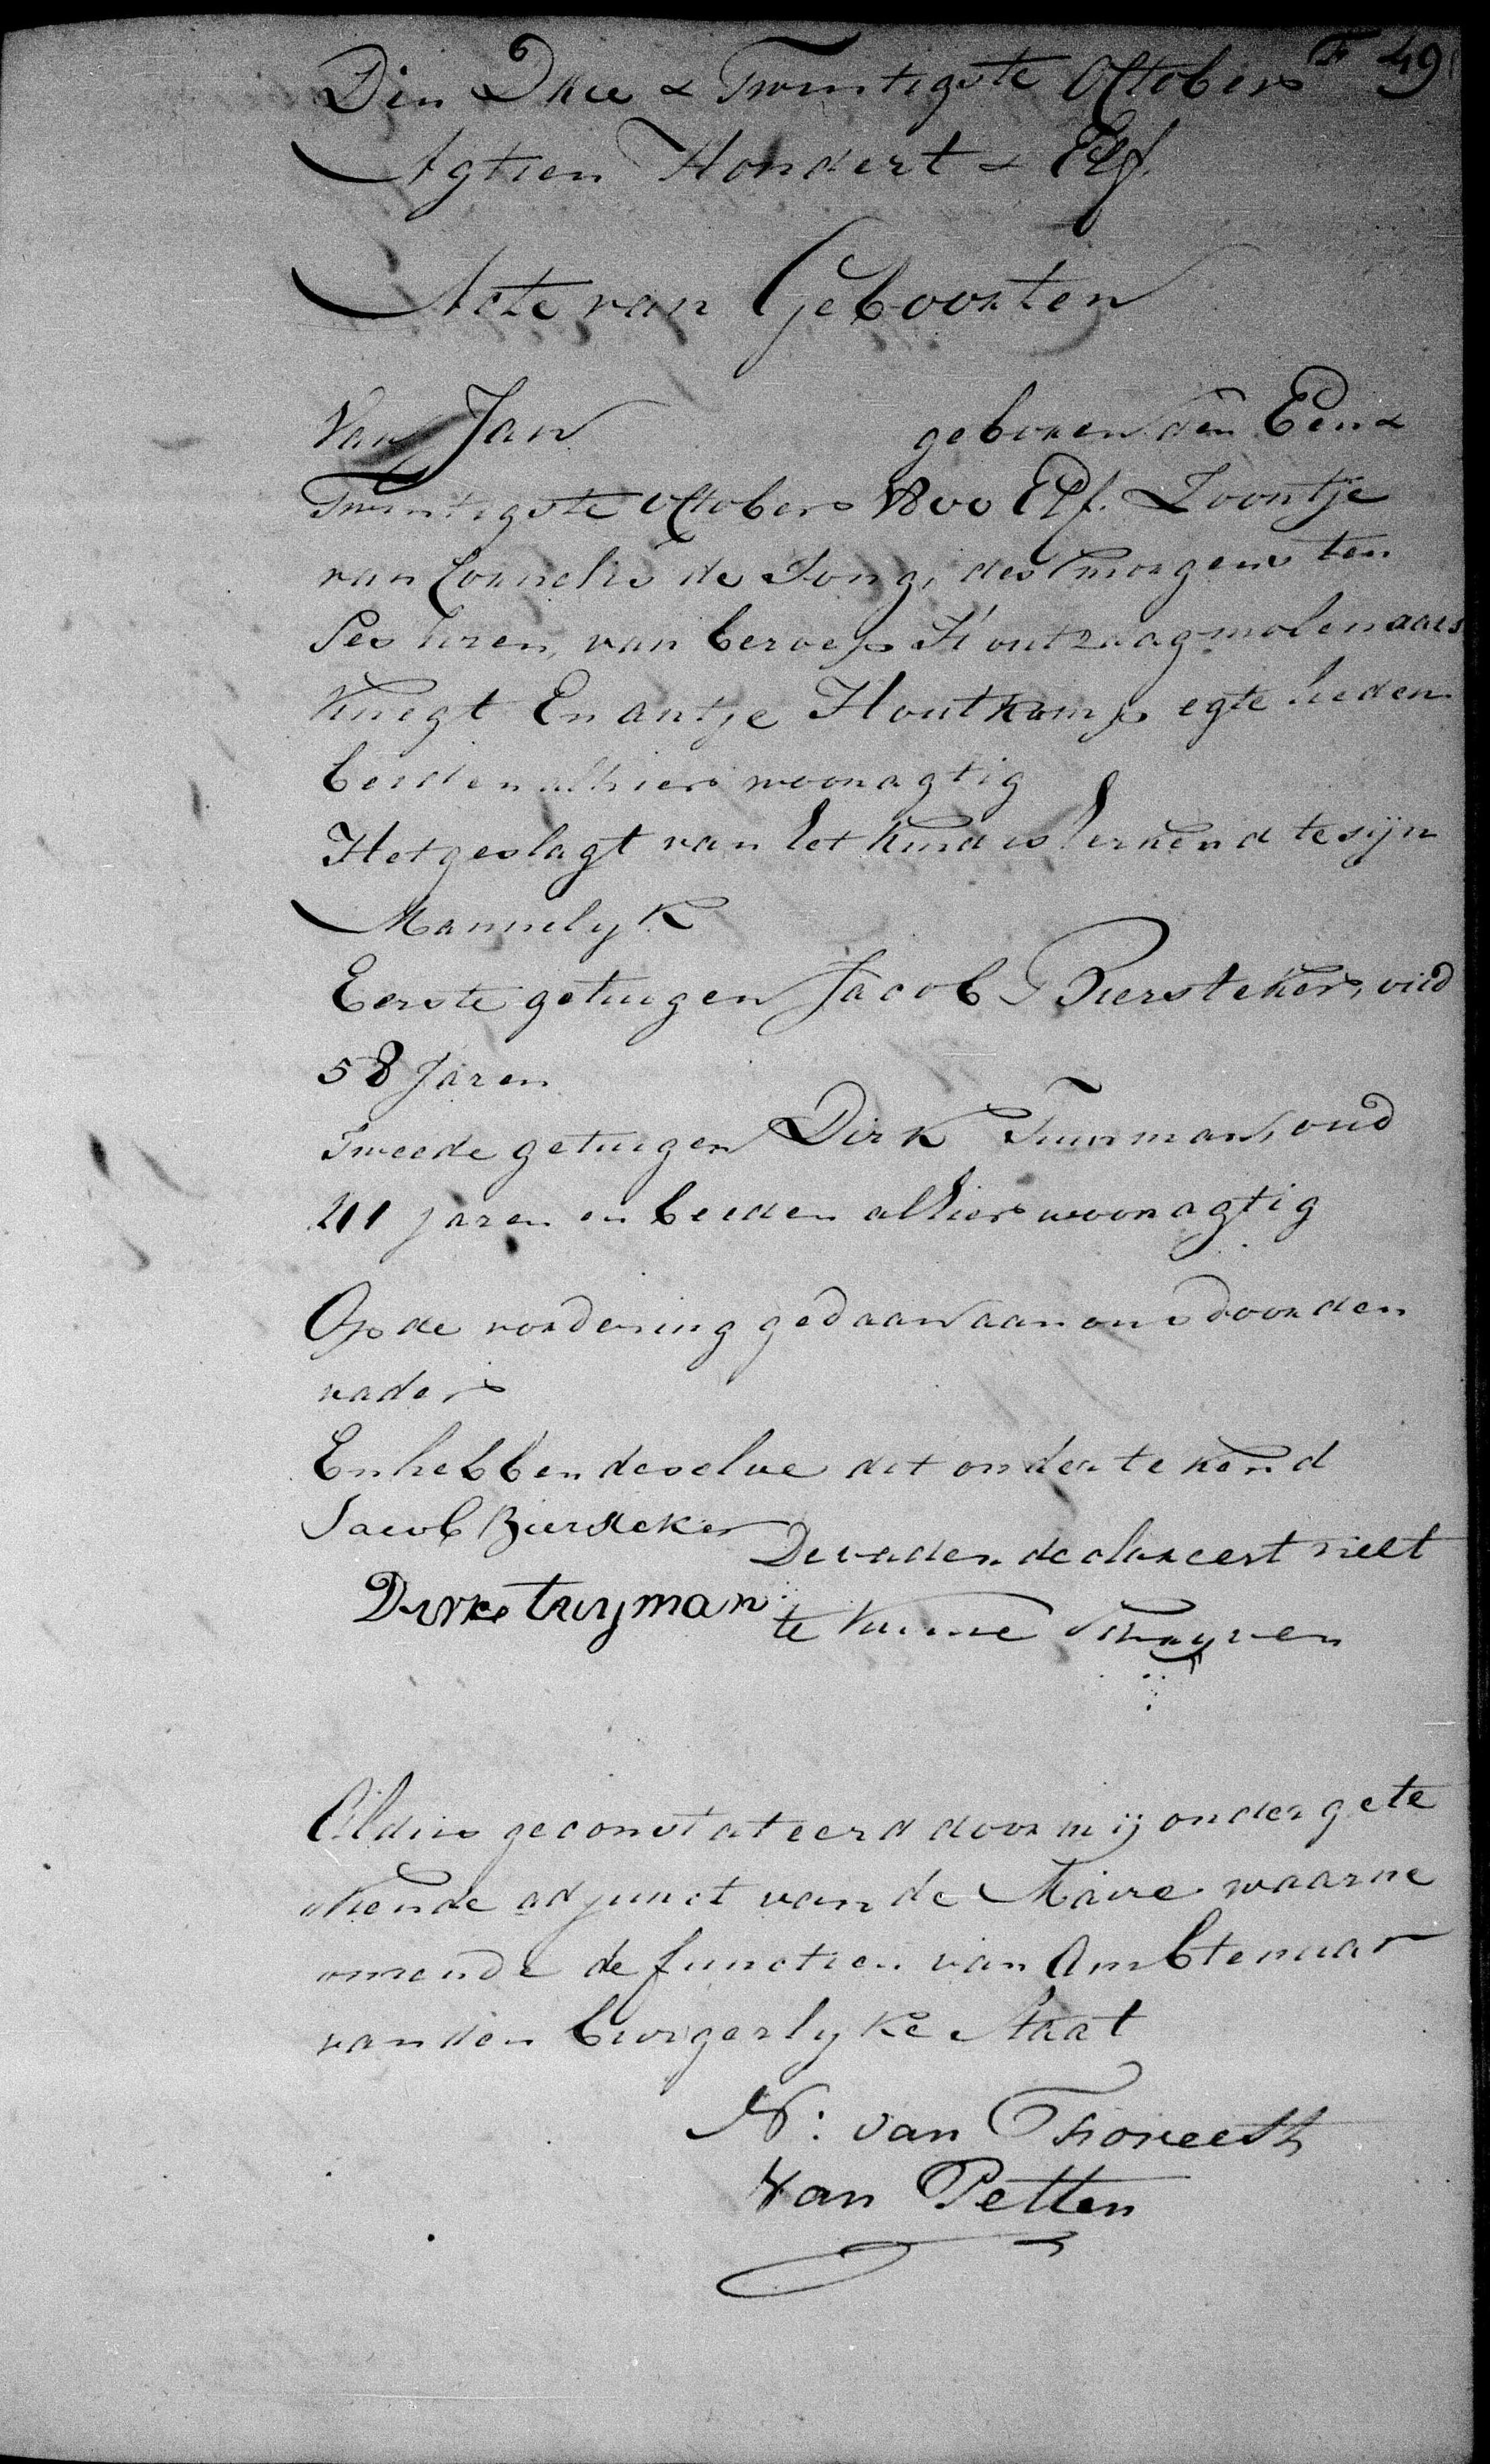 F 49
Den Drie & Twintigste October
Agtien Hondert & Elf.
Acte van Geboorten
Van Jan geboren den Een &
Twintigste October 1800 Elf. Zoontje
van Cornelis de Jong, des smorgens ten
Ses uren, van beroep Houtzaagmolenaars
Knegt En antje Houtkamp egte lieden
beiden alhier woonagtig
Het geslagt van het kind is Erkend te sijn
Mannelyk
Eerste getuigen Jacob Biersteker, oud
58 Jaren
Tweede getuigen Dirk Tuinman, oud
41 jaren en beiden alhier woonagtig
Op de vordering gedaan aan ons door den
vader
En hebben deselve dit ondertekend
Jacob Biersteker
De vader declareert niet
Dirk tuyman
te kunne Schryven
Aldus geconstateerd door mij ondergete
kende adjunct van de Maire waarne
omende de functien van Ambtenaar
van den burgerlyke Staat
N: van Foreest
Van Petten